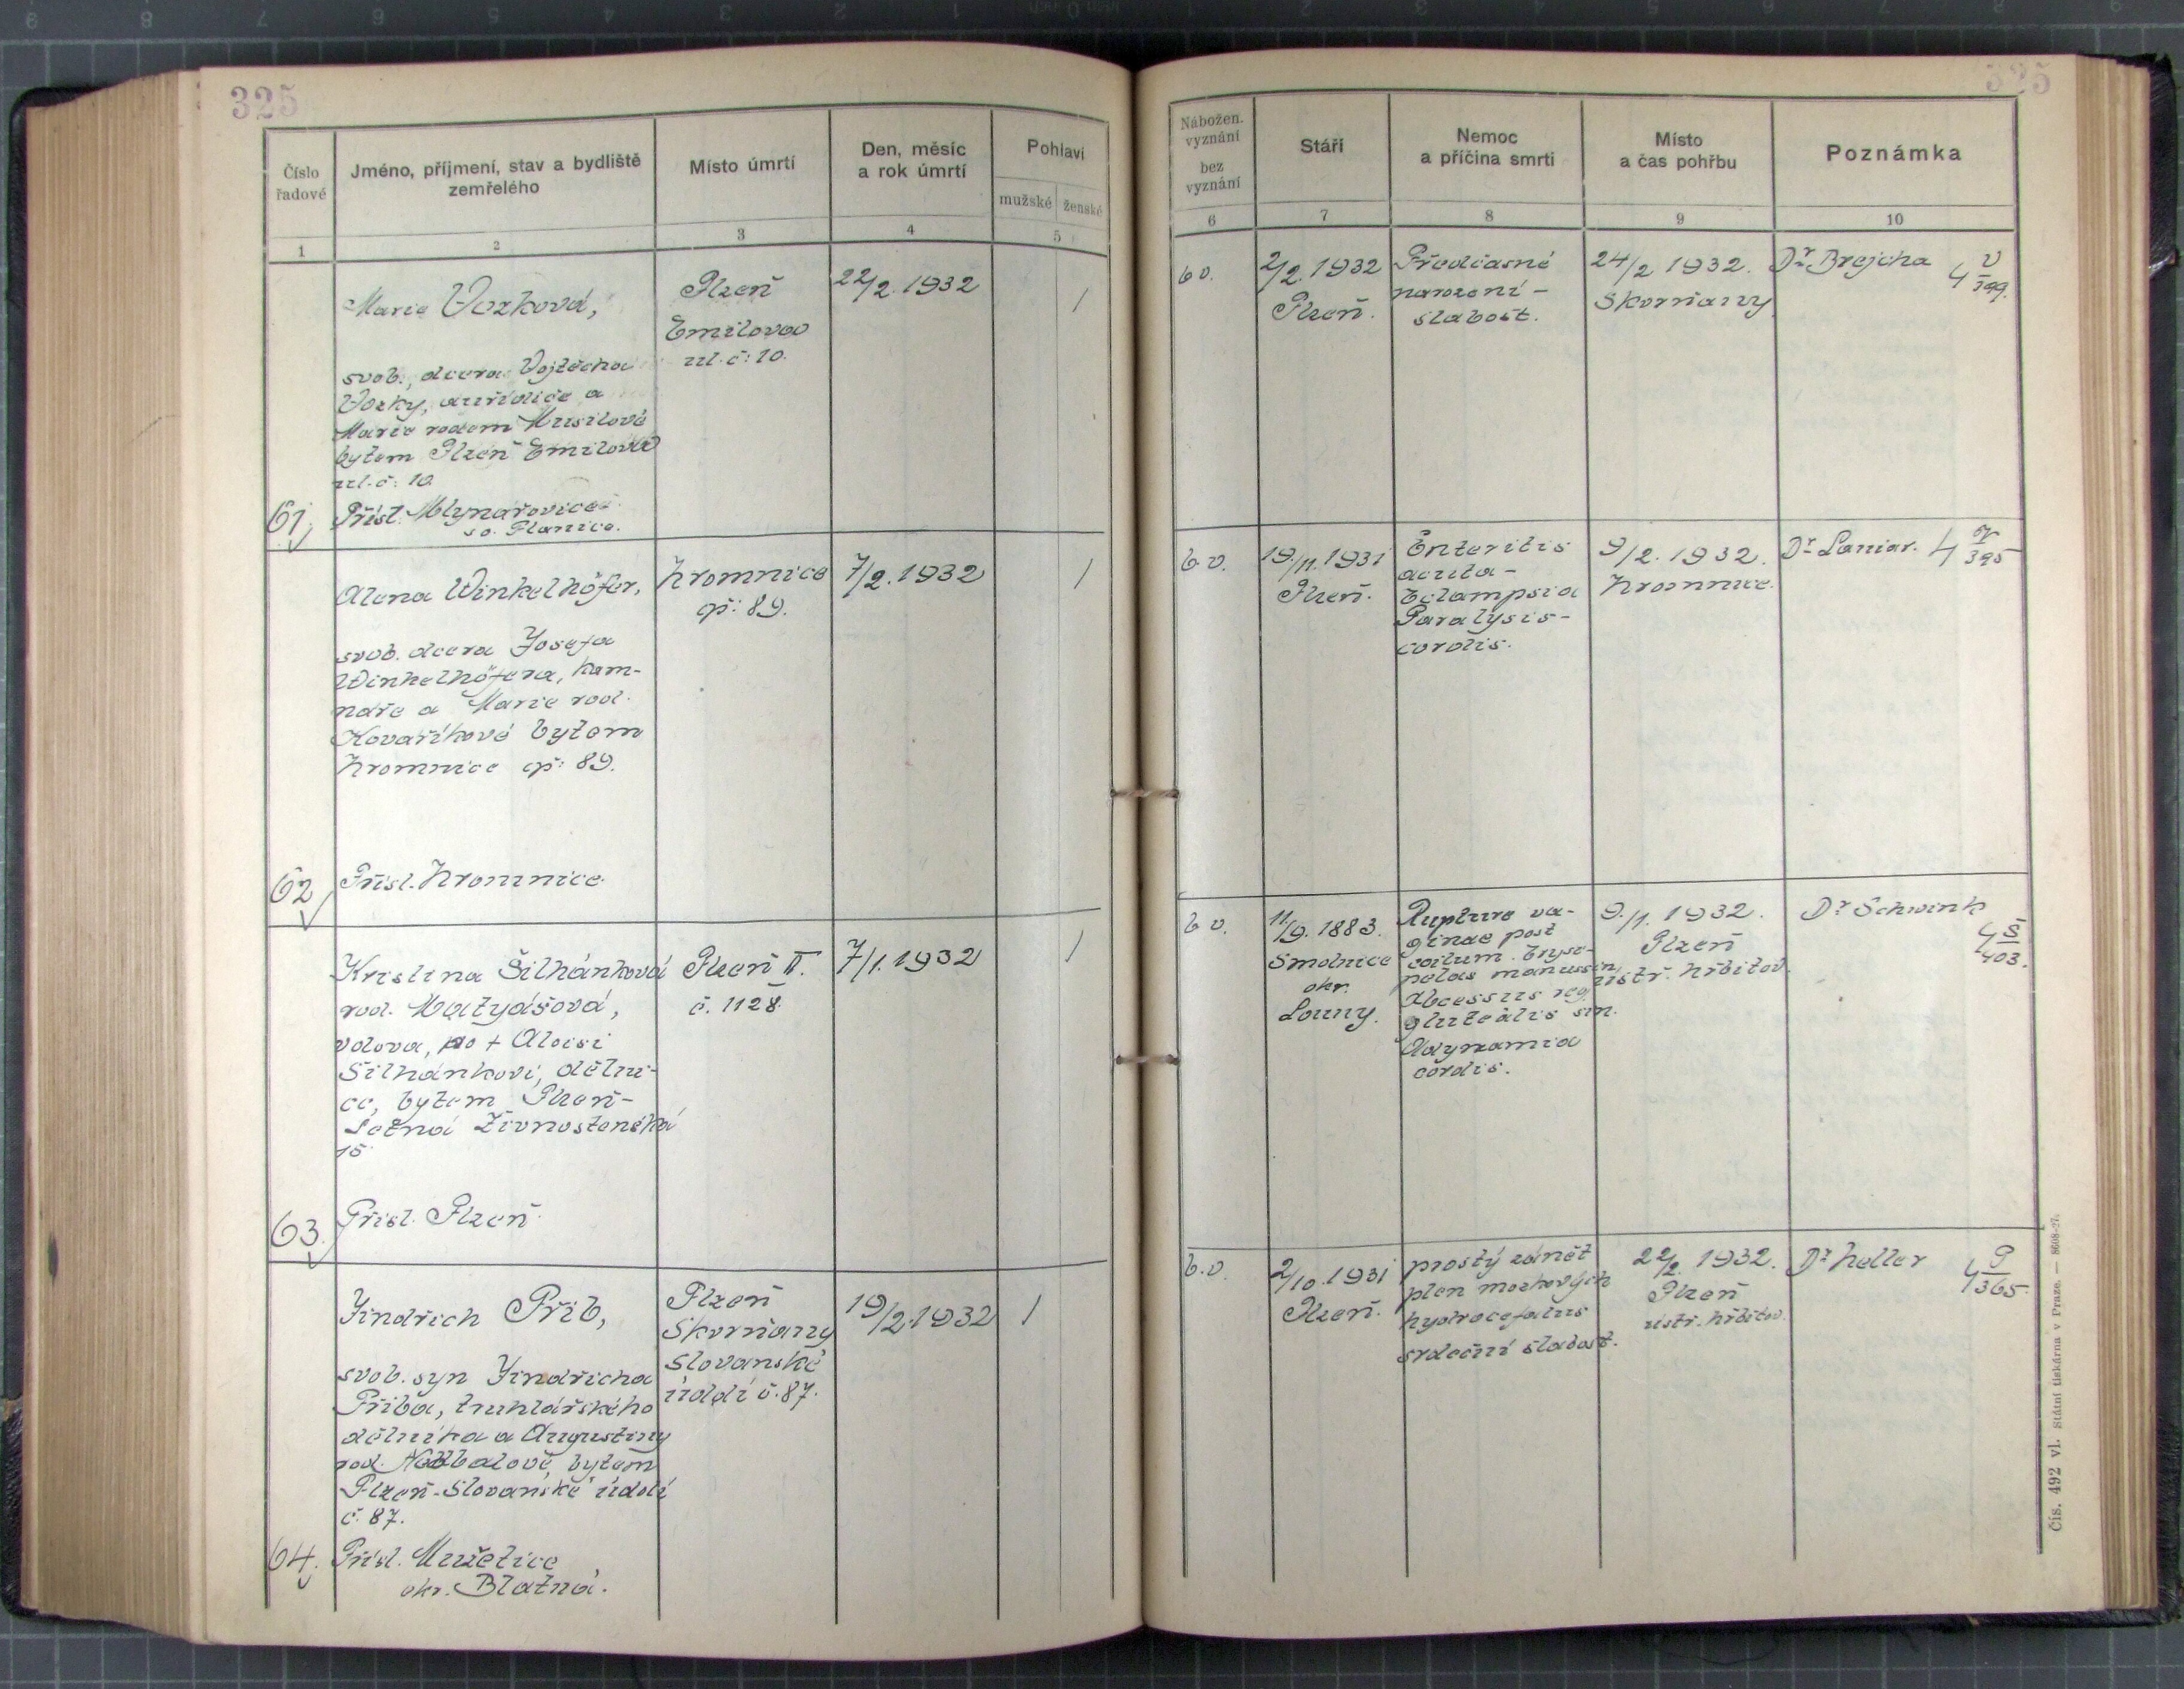 325
325
Číslo
řadové
Jméno, příjmení, stav a bydliště
zemřelého
Místo úmrtí
Den, měsíc
a rok úmrtí
Pohlaví
mužské ženské
1
2
3
4
5
Marie Vozková,
svob., dcera Vojtěcha
Vozky, a
Marie rodem Musilové
bytem Plzeň Emilova
ul. č: 10.
61. Přísl. Mlynařovice
so. Planice.
Plzeň
Emilova
ul. č: 10.
22/2. 1932
/
Alena Winkelhöfer,
svob. dcera Josefa
Winkelhöfera, kam-
náře a Marie rod.
Kovaříkové bytem
Hromnice čp: 89.
62 Přísl. Hromnice.
Hromnice
čp: 89.
7/2. 1932
/
Kristina Šilhánková
rod. Matyášová,
vdova, po + Aloisi
Šilhánkovi, dělni-
ce, bytem Plzeň-
Letná Živnostenská
15.
63. Přísl. Plzeň.
Plzeň II.
č. 1128.
7/1. 1932
/
Jindřich Přib,
svob. syn Jindřicha
Přiba, truhlářského
dělníka a Augustiny
rod. bytem
Plzeň-Slovanské údolí
č. 87.
64. Přísl. Mužetice
okr. Blatná.
Plzeň
Skvrňany
Slovanské
údolí č. 87.
19/2. 1932
/
Nábožen.
vyznání
bez
vyznání
Stáří
Nemoc
a příčina smrti
Místo
a čas pohřbu
Poznámka
6
7
8
9
10
b v.
2/2. 1932
Plzeň.
Předčasné
narození -
slabost.
24/2 1932.
Skvrňany
Dr Brejcha
4 V
b. v.
19./11. 1931
Plzeň.
Enteritis
acuta -
Eclampsia
Paralysis -
cordis.
9/2. 1932.
Hromnice.
Dr Laniar.
4 395
b v.
11/9. 1883.
Smolnice
okr.
Louny.
Rupture va-
ginae post
coitum. Eryse-
pelas manus sin.
Abcessus reg.
glutealis sin.
Adynamia
cordis.
9./1. 1932.
Plzeň
ústř. hřbitov.
Dr Schwink
4 Š 403.
b. v.
2/10. 1931
Plzeň.
prostý zánět
plen mozkových
hydrocefalus
srdeční slabost.
22/2. 1932.
Plzeň
ústř. hřbitov.
Dr Heller
4 P 365.
Čís. 492 vl. Státní tiskárna v Praze. — 8608-27.